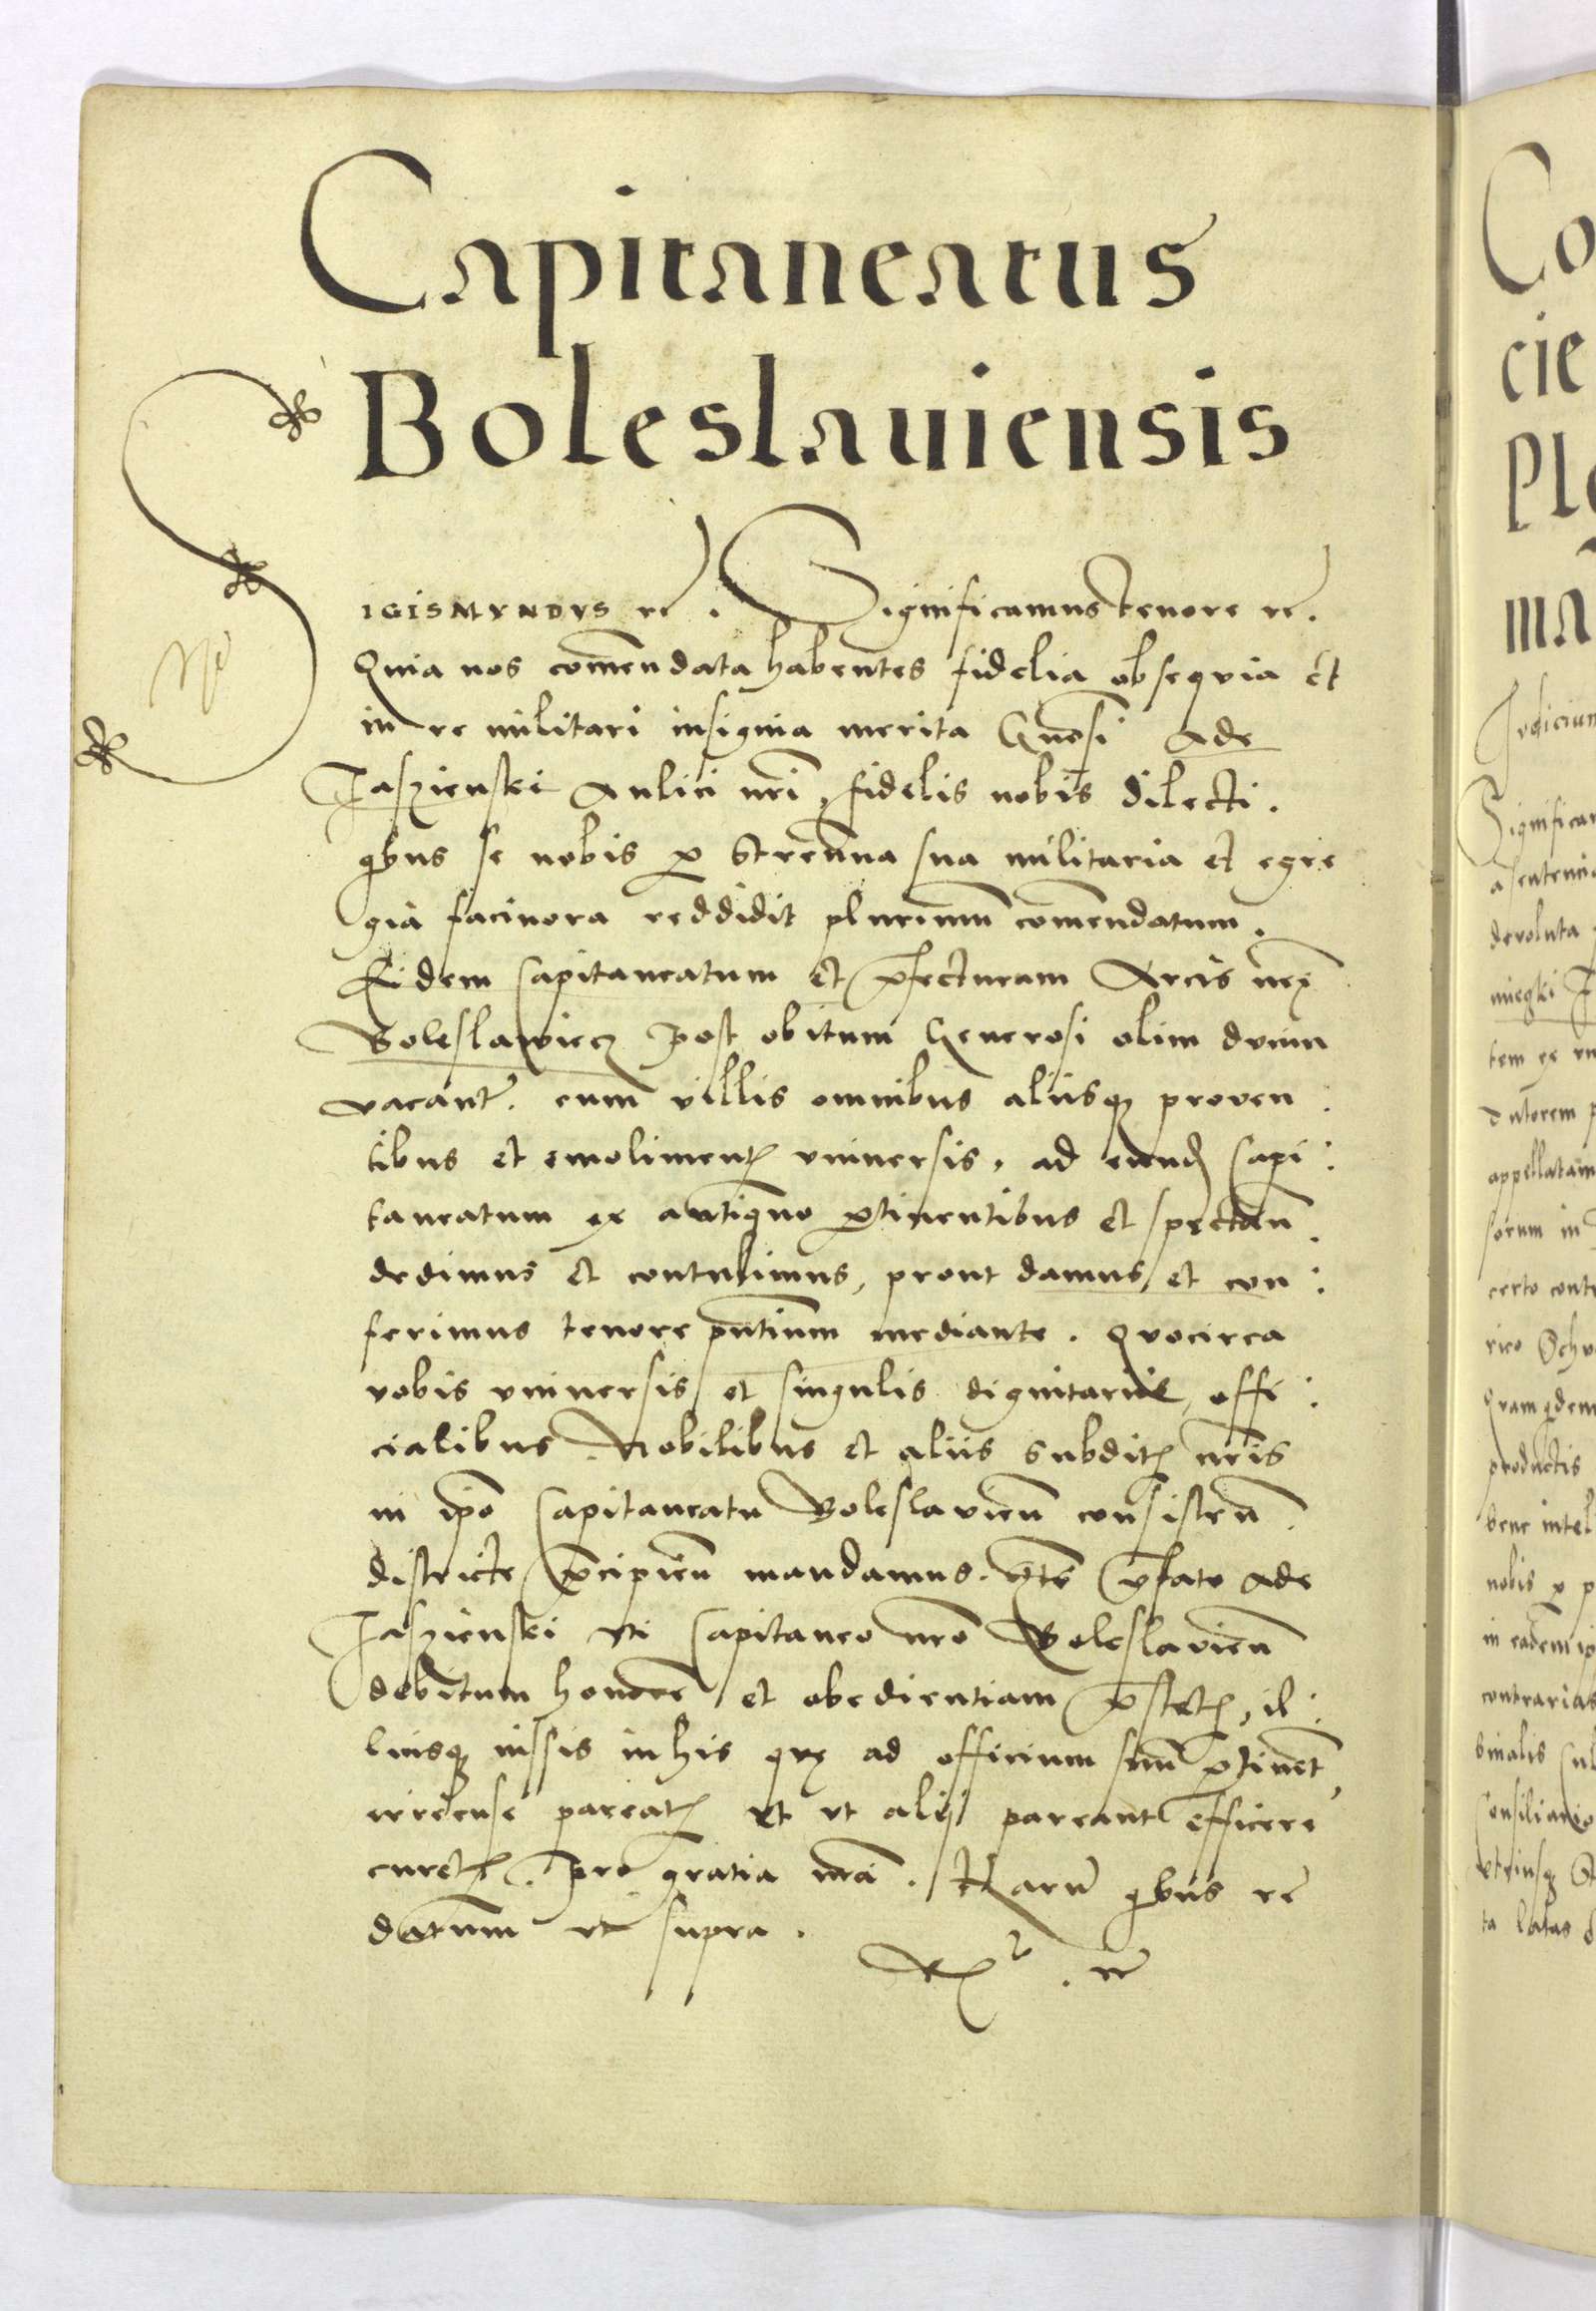 Capitaneatus
Boleslauiensis
SIGISMVNDVS rc̄. Significamus tenore rc̄.
Quia nos com̄endata habentes fidelia obsequia et
in re militari insignia merita Gn̄osi Ade
Jaszienski Aulici nr̄i, fidelis nobis dilecti.
qbus se nobis ꝑ strennua sua militaria et egre
gia facinora reddidit plurimū com̄endatum.
Eidem Capitaneatum et p̄fecturam Arcis nr̄ę
Boleslawiecz post obitum Generosi olim
vacan̄t. cum villis omnibus aliisqꝫ proven
tibus et emolimentꝭ vniuersis, ad eundꝭ Capi:
taneatum ex antiquo ꝑtinentibus et spectan̄.
dedimus et contulimus, prout damus et con:
ferimus tenore pn̄tium mediante. Quocirca
vobis vniuersis et singulis dignitariis, offi:
cialibus Nobilibus et aliis subditꝭ nr̄is
in ip̄o Capitaneatu Boleslavien̄ consisten̄.
districte p̄cipien̄ mandamus. qte p̄fato Ade
Jaszienski vti Capitaneo nr̄o Boleslavien̄
debitum honorē et obedientiam p̄stetꝭ, il:
liusqꝫ iussis in his quę ad officium suū ꝑtinēt
pareatꝭ et vt alij pareant efficere
curetꝭ. pro gratia nr̄a. Harū qbus rc̄
datum vt supra.
Rx. rc̄
Co
cie
Pl
ma